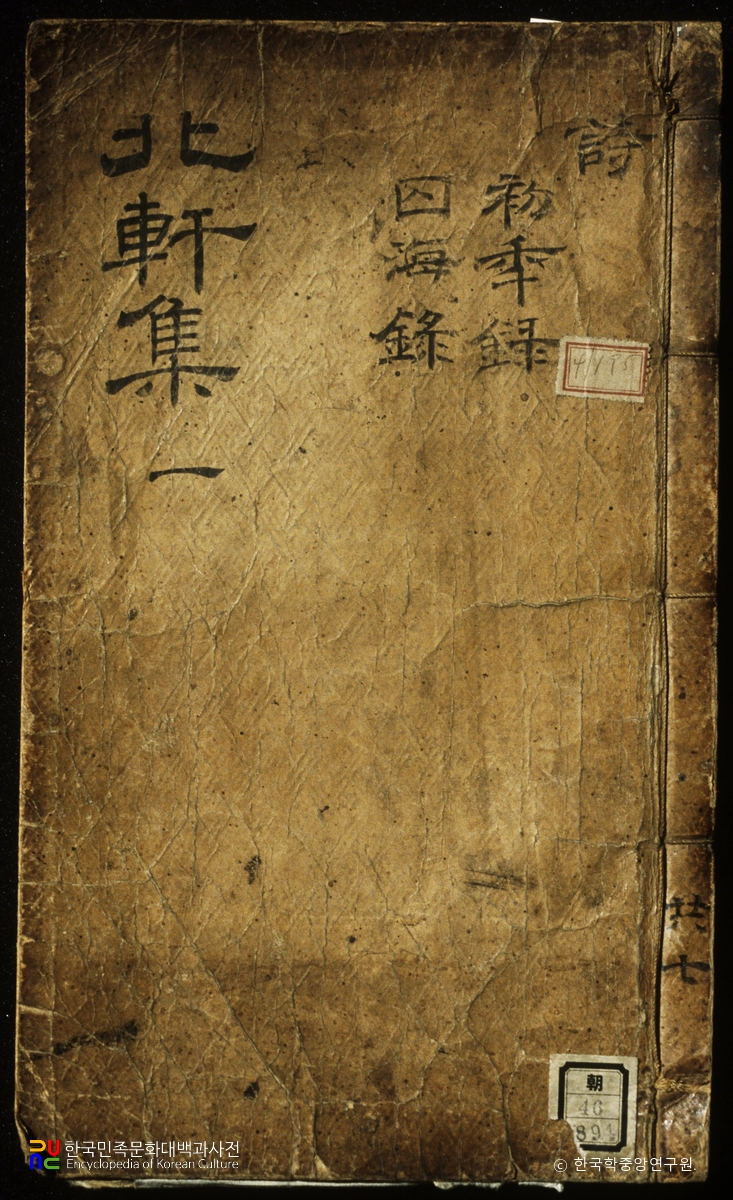 詩
初年録
囚海錄
北軒集 一
共七
朝
46
894
한국민족문화대백과사전
Encyclopedia of Korean Culture
© 한국학중앙연구원